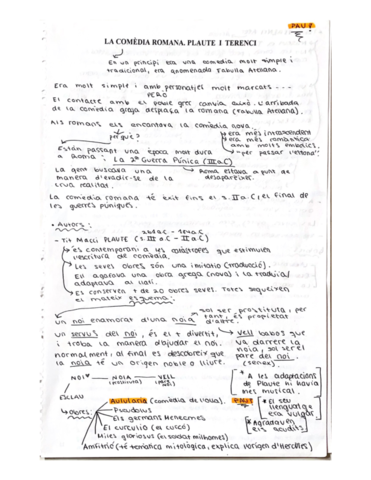 PAU 8
LA COMÈDIA ROMANA. PLAUTE I TERENCI
En un principi era una comèdia molt simple i
tradicional, era anomenada Fabulla Atelana.
Era molt simple i amb personatjes molt marcats ---
PERÒ
El contacte amb el poble grec canvia això. L'arribada
de la comèdia grega despaça la romana (Fabulla Atelana).
Als romans els encantava la comèdia nova.
perquè?
era més intranscendent
era més romàntica
amb molts embolics.
- per passar l'estona
Estàn passant una època molt dura
a Roma: La 2ª Guerra Púnica (III a.C)
La gent buscava una
manera d'evadir-se de la
seua realitat.
Roma estava a punt de
desaparèixer.
La comèdia romana té èxit fins el s. II a.C, el final de
les guerres púniques.
• Autors:
- Tit Macci PLAUTE (s. III a.C - II a.C)
és contemporani a les catàstrofes que estimulen
l'escritura de comèdia.
Les seves obres són una imitatio (traducció).
Ell agafava una obra grega (nova) i la traduïa/
adaptava al llatí.
Es conserven + de 20 obres seves. Totes segueixen
el mateix esquema:
sol ser prostituta, per
tant, és propietat
d'altre.
Un noi enamorat d'una noia
un servus del noi, és el + divertit,
i troba la manera d'ajudar el noi.
normalment, al final es descobreix que
la noia té un origen noble o lliure.
vell babós que
va darrere la
noia, sol ser el
pare del noi.
(senex)
NOI NOIA VELL
(prostituta)
ESCLAU
• A les adaptacions
de Plaute hi havia
més musical.
PAU!
• El seu
llenguatge
era vulgar
• Agradaven
els acudits
Obres:
Aulularia (comèdia de l'olla).
Pseudolus
Els germans Menecmes
El curculio (el cuscó)
Miles gloriosus (el soldat milhomes)
Amfitrió (té temàtica mitològica, explica l'origen d'Hèrcules)